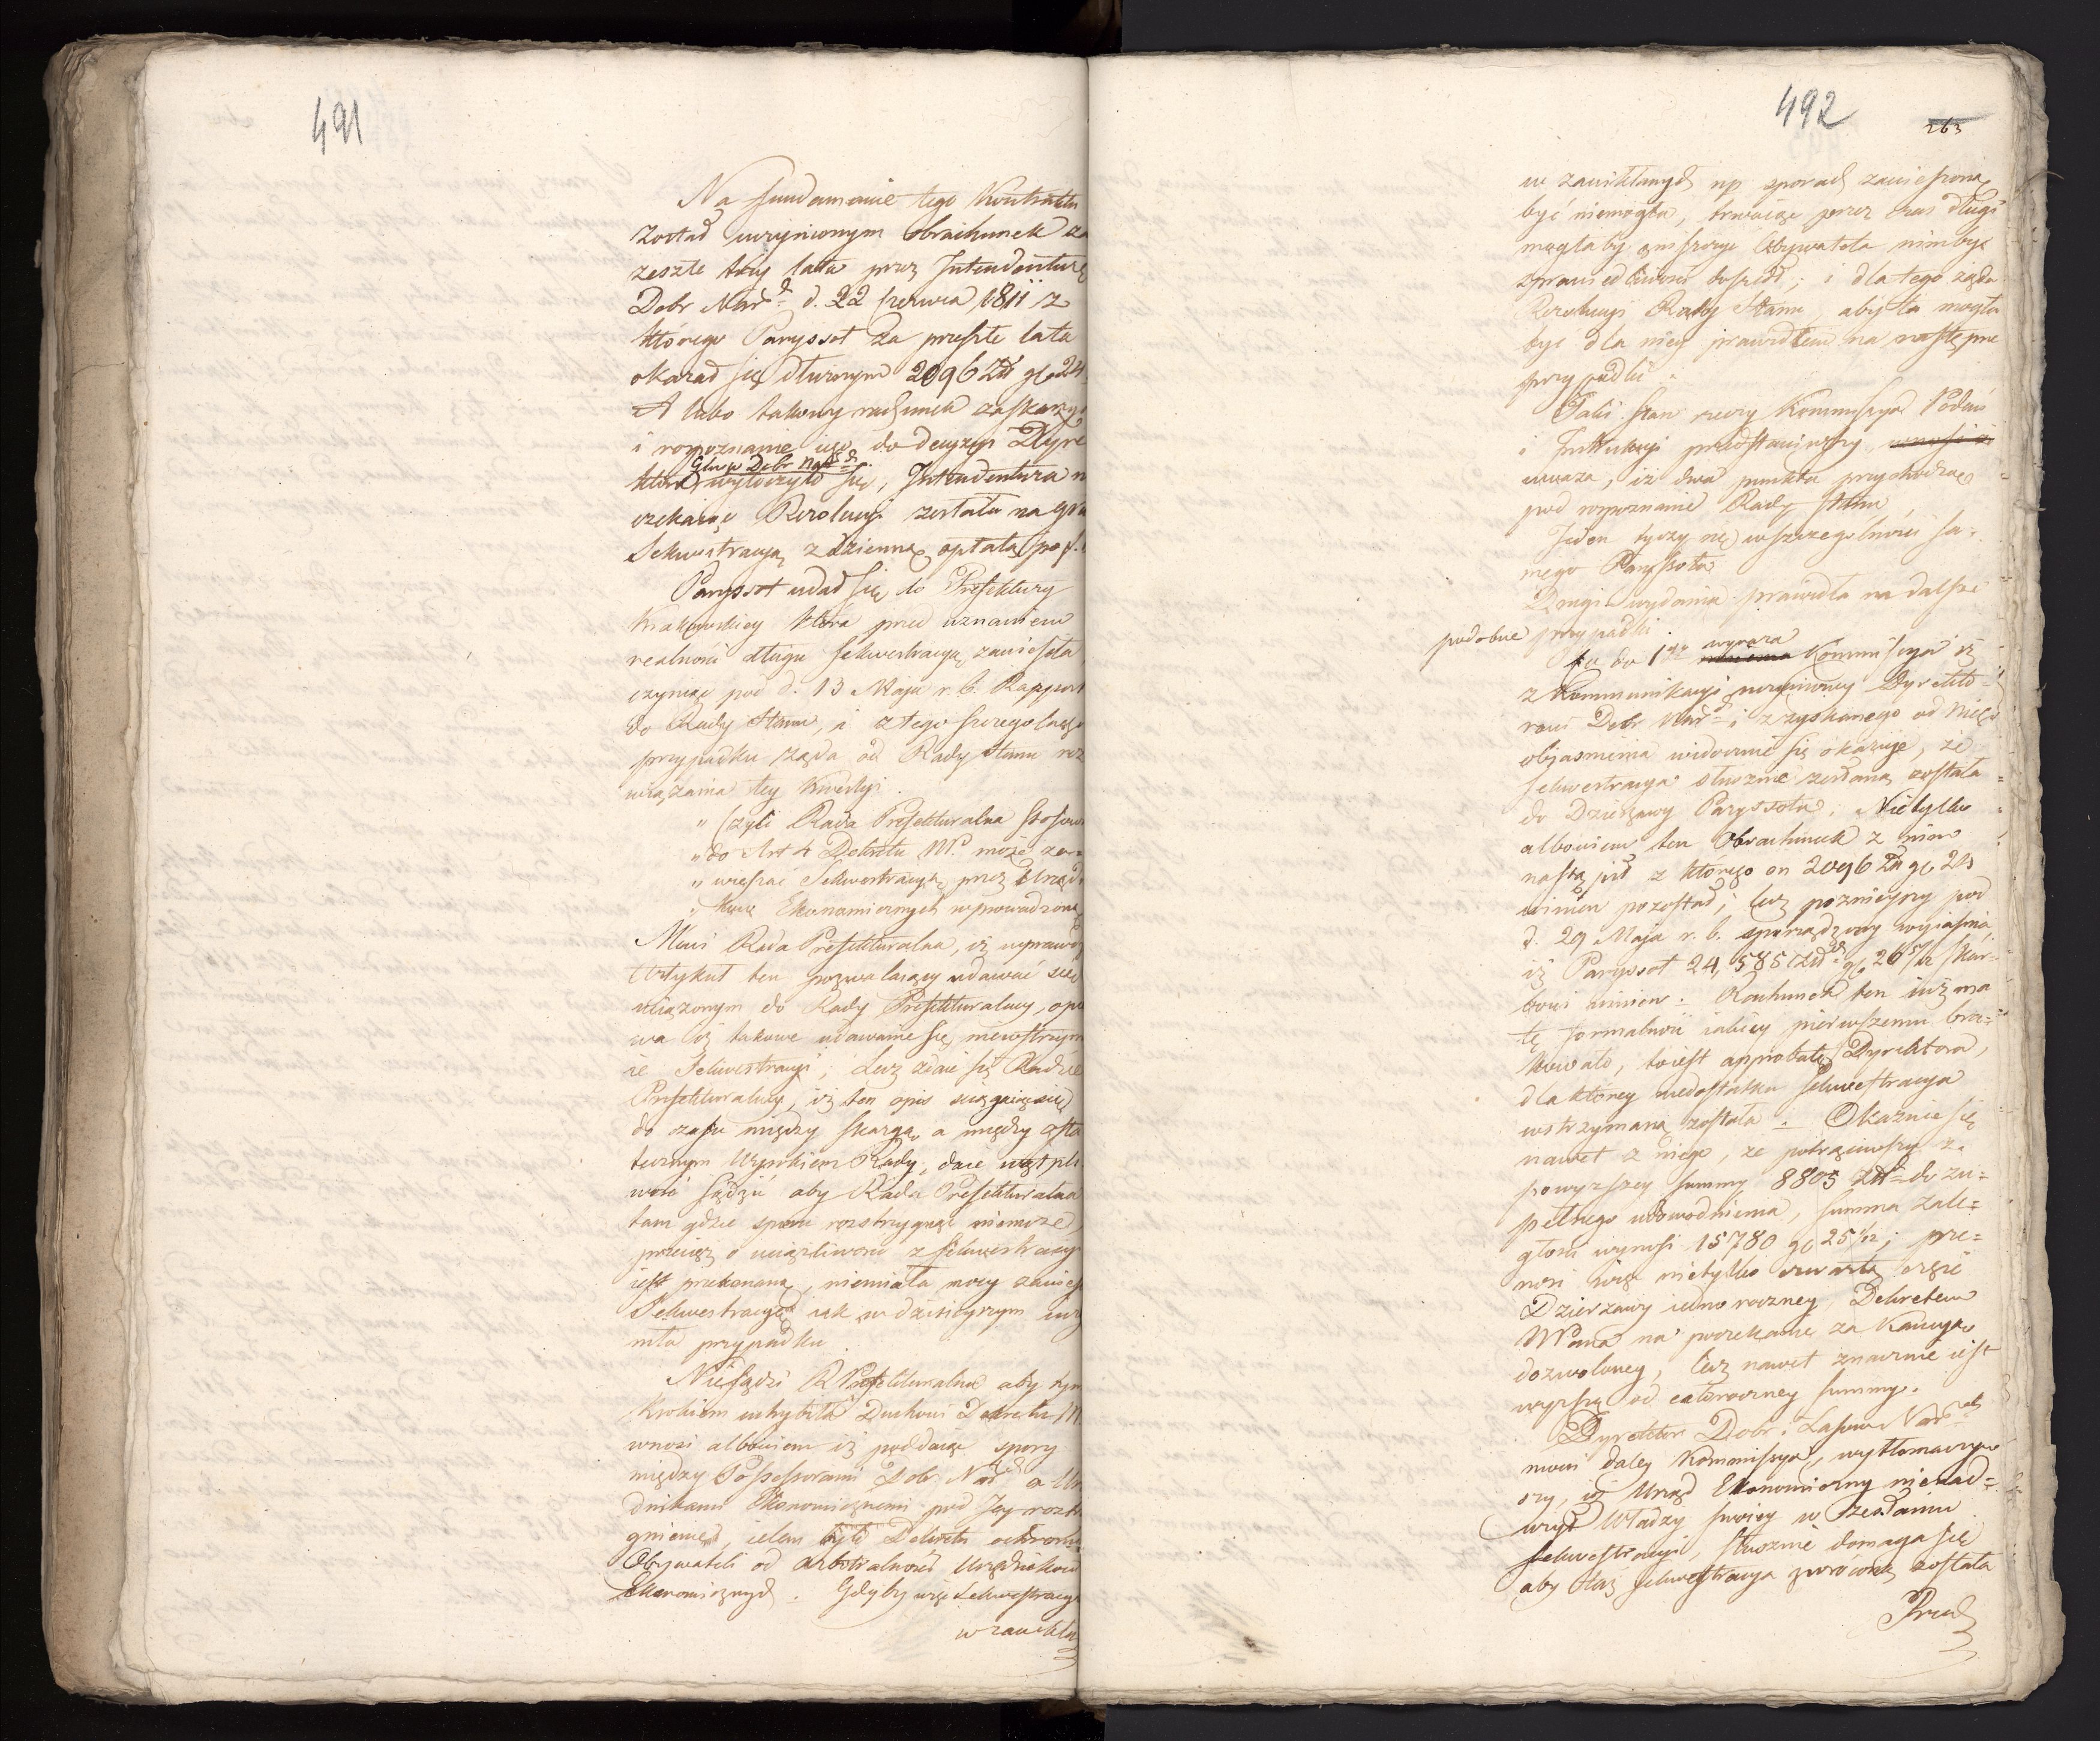 491
Na fundamencie tego Kontraktu
został uczynionym obrachunek za
zeszłe trzy lata przez Intendenturę
Dobr Nar. d. 22 Czerwca 1811 z
którego Paryssot za przeszłe lata
okazał się dłużnym 2096 Zł gr 24
A lubo takowy rachunek zaskarżył
i rozpoznanie iego do decyzyi Dyre
Głwo Dobr Nar
która wytoczyło się, Intendentura n
czekaiąc Rezolucyi zesłała na gru
Sekwestracyą z dzienną opłatą po f.
Paryssot udał się do Prefektury
Krakowskiey która przed uznaniem
realności długu sekwestracyą zawiesiła
czyniąc pod d. 13 Maja r. b. Rapport
do Rady Stanu, i z tego szczególnego
przypadku żąda od Rady Stanu roz
wiązania tey kwestyi.
„ Czyli Rada Prefekturalna stosow
„ do Art 4 Dekretu NP. może za=
„ wieszać Sekwestracyą przez Urzęd
„ Ekonomicznych wprowadzoną
Mówi Rada Prefekturalna, iż wprawdz
Artykuł ten pozwalaiący udawać się
uciążonym do Rady Prefekturalney, opi
wa iż takowe udawanie się niewstrzym
ie Sekwestracyi; Lecz zdaie się Radzie
Prefekturalney, iż ten opis ściągaiąc się
do czasu między skargą a między osta
tecznym Wyrokiem Rady, daie wątpli
wość sądzić aby Rada Prefekturalna
tam gdzie sporu rozstrzygnąć niemoże,
przeciez o uciążliwości z sekwestracyi
iest przekonaną, niemiała mocy zawiesi
Sekwestracyą iak w dzisieyszym
mła przypadku.
Niesądzi R Prefekturalna aby tym
krokiem uchybiła Duchowi Dekretu N.
wnosi albowiem iż poddaiąc spory
między Possessorami Dobr Nar a Ur
dnikami Ekonomicznemi pod Jey rozst
gnienie, celem było Dekretu ochrona
Obywateli od arbitralności Urzędników
Ekonomicznych. Gdyby więc sekwestracya
w zawikła
492
263
w zawikłanych np sporach zawieszoną
być niemogła, trwaiąc przez czas długi
mogłaby zniszczyć Obywatela nim by
sprawiedliwości doszedł; i dla tego żąda
Rezolucyi Rady Stanu, aby ta mogła
być dla niey prawidłem na następne
przypadki.
Taki stan rzeczy Kommissya Podań
i Instrukcyi przedstawiwszy wnosi i
uważa, iż dwa punkta przychodzą
pod rozpoznanie Rady Stanu
Jeden tyczy się wszczegolności sa=
mego Paryssota
Drugi wydania prawidła na dalsze
podobne przypadki.
Co do 1go wyraża Kommissya iż
z kommunikacyi uczynioney Dyrekto=
rowi Dobr Nar i z zyskanego od niego
objasnienia widocznie się okazuje, że
sekwestracya słusznie zesłaną została
do Dzierzawy Paryssota. Nietylko
albowiem ten Obrachunek z nim
nastąpił z którego on 2096 Zł gr 24
winien pozostał; lecz poznieyszy pod
d. 29 Maja r. b. sporządzony wyjaśnia,
iż Paryssot 24,585 Zł gr 26 5/12 skar=
bowi winien. Rachunek ten iuż ma
tę formalność iakiey pierwszemu bra=
kowało, toiest approbatę Dyrektora,
dla którey niedostatku sekwestracya
wstrzymaną została. Okazuie się
nawet z niego, że potrąciwszy z
powyższey summy 8805 Zł do zu=
pełnego udowodnienia, summa zale=
głości wynosi 15780 gr 25 5/12; prze=
nosi więc nietylko czwartą część
Dzierzawy iednoroczney, Dekretem
NPana na poczekanie za kaucyą
dozwoloney, lecz nawet znacznie iest
wyższą od całoroczney summy.
Dyrektor Dobr i Lasów Nar
mowi daley Kommissya, wytłomaczyw
szy, iż Urząd Ekonomiczny nienad=
użył Władzy swoiey w zesłaniu
sekwestracyi, słusznie domaga się
aby taż sekwestracya zwróconą została
Przed